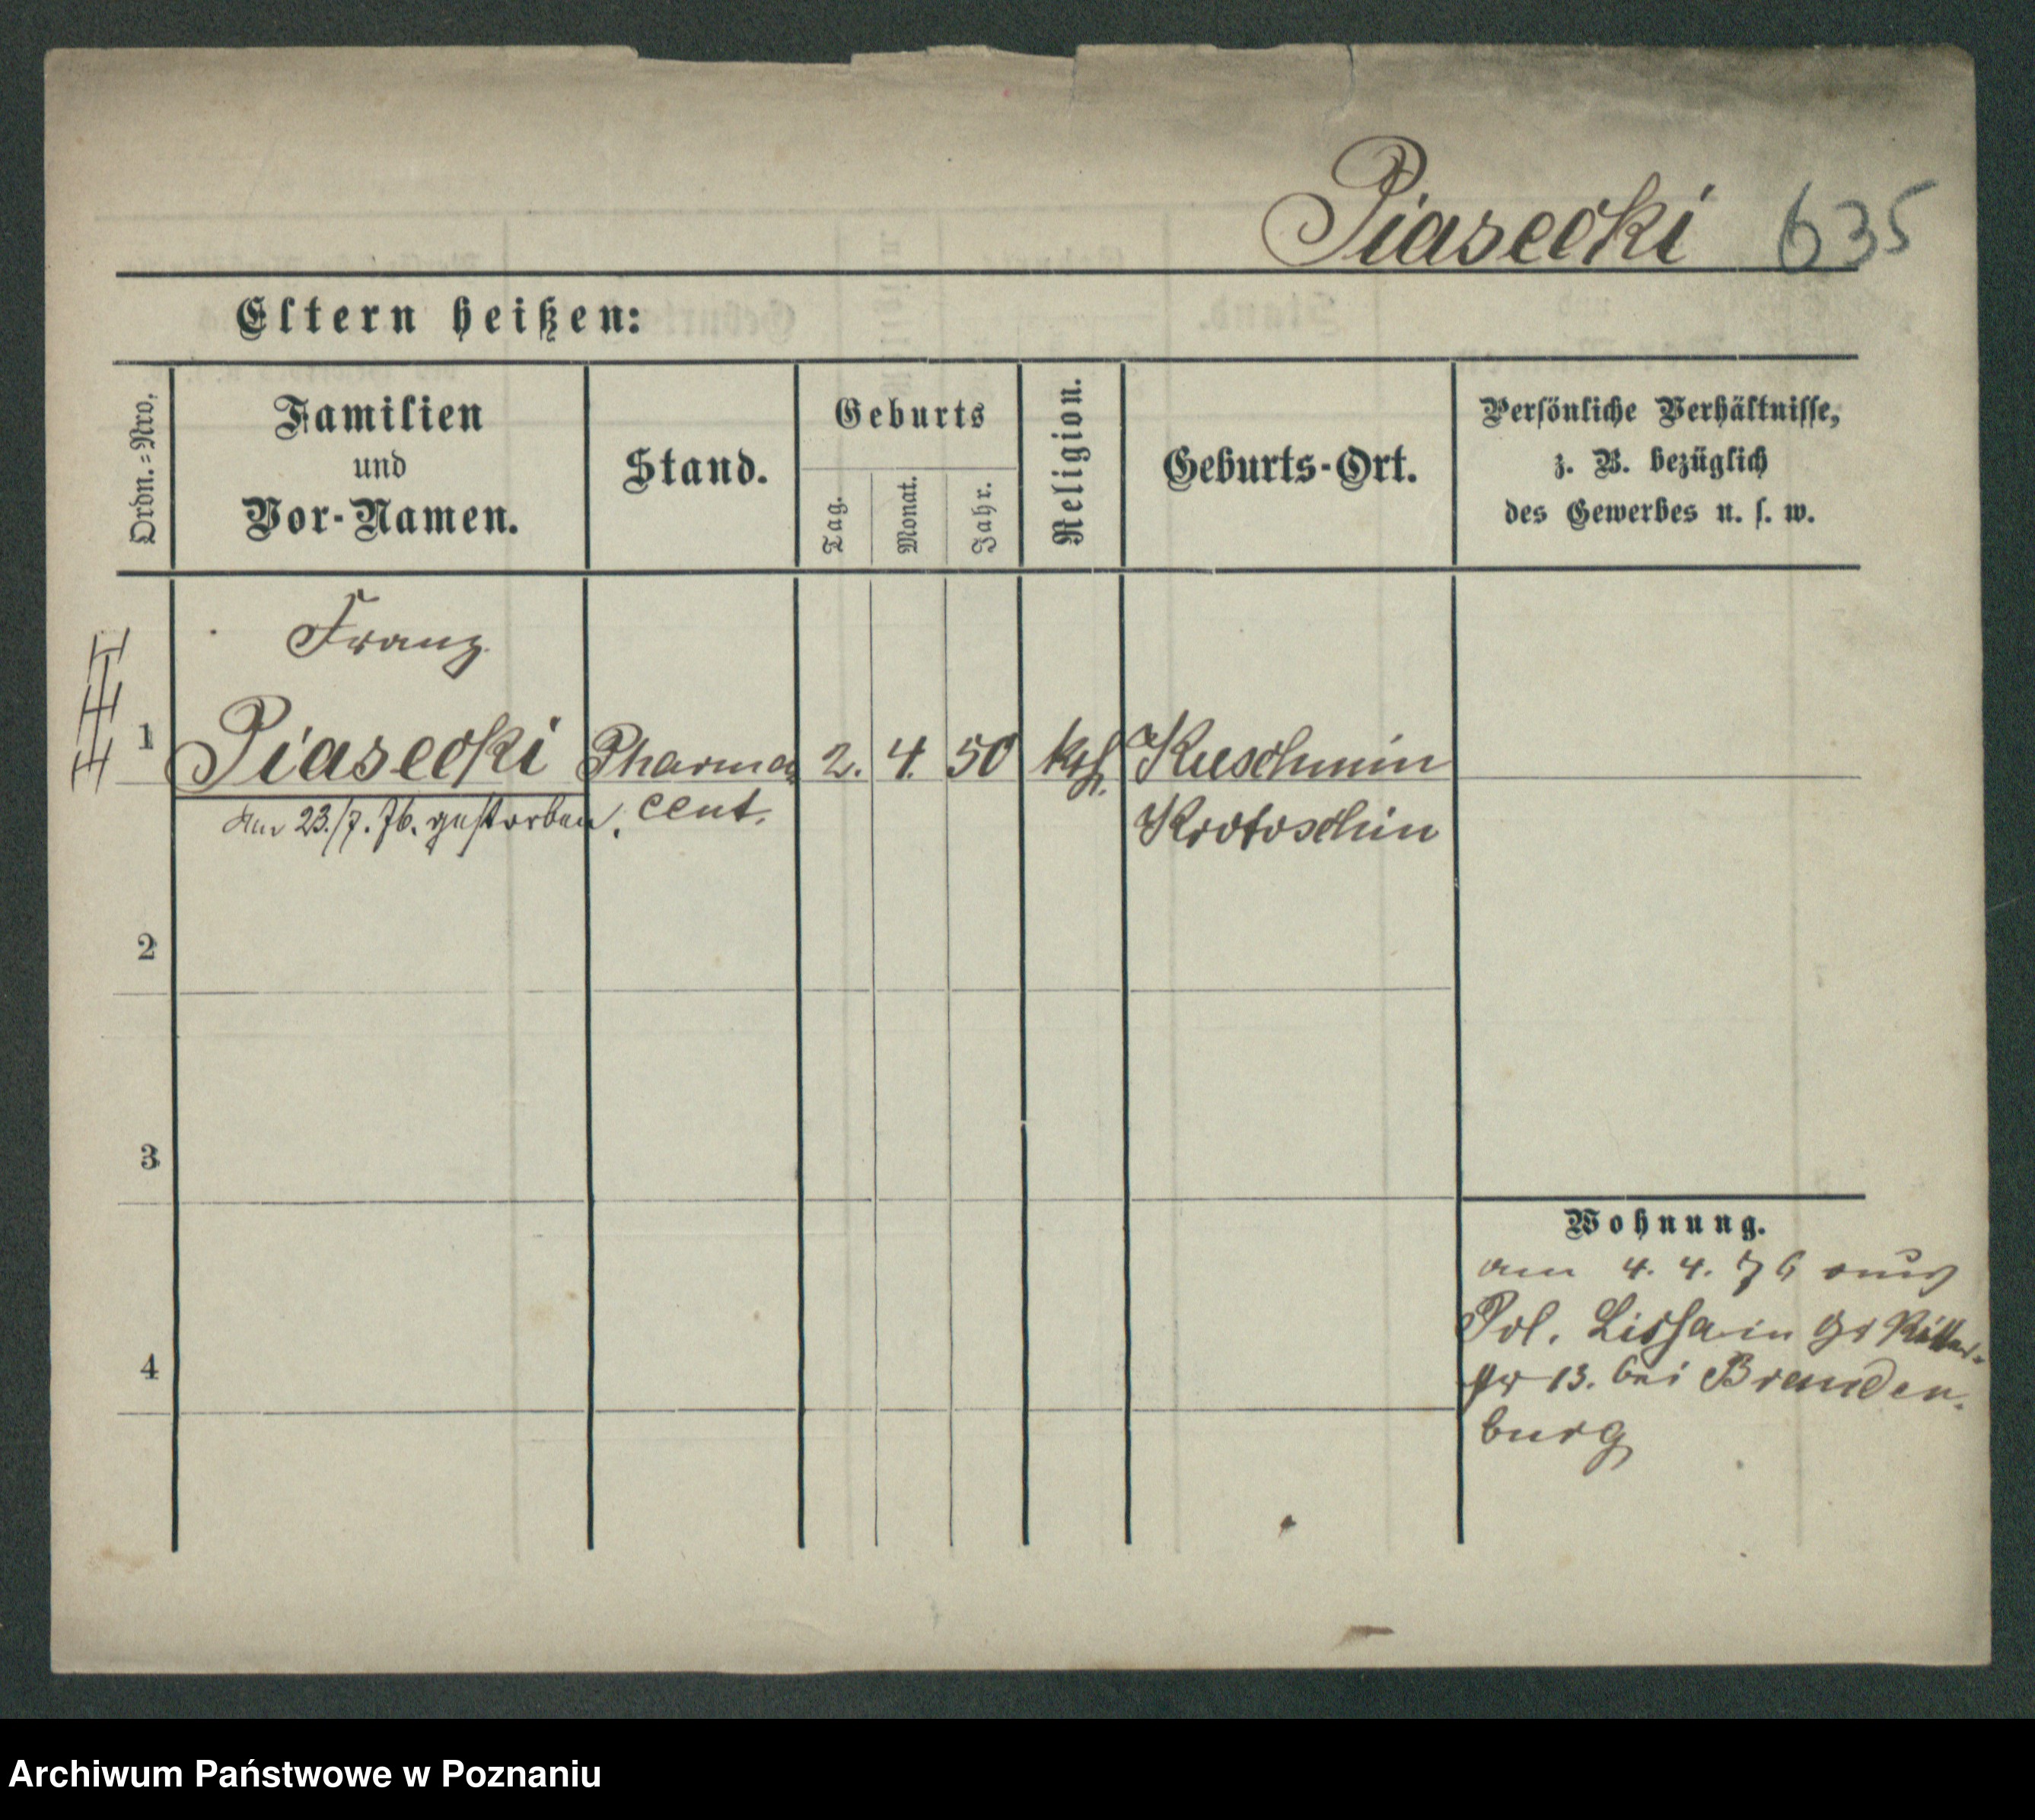 Piasecki 635
Eltern heißen:
Ordn.=Nro.
Familien
und
Vor-Namen.
Stand.
Geburts
Tag.
Monat.
Jahr.
Religion.
Geburts-Ort.
Persönliche Verhältnisse,
z. B. bezüglich
des Gewerbes u. s. w.
Franz
1 Piasecki Pharma 2. 4. 50 kth. Kuschmin
am 23./7. 76. gestorben. cent. Krotoschin
2
3
4
Wohnung.
am 4. 4. 76 aus
Pol. Lissa in Gr Ritter-
13. bei Branden-
burg
Archiwum Państwowe w Poznaniu